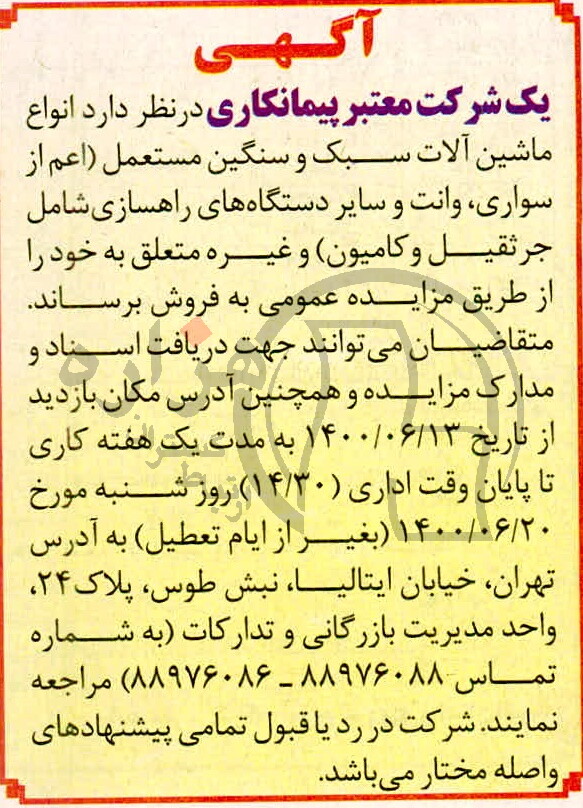 آگـهـی
یک شرکت معتبر پیمانکاری درنظر دارد انواع
ماشین آلات سبک و سنگین مستعمل (اعم از
سواری، وانت و سایر دستگاه‌های راهسازی شامل
جرثقیل و کامیون) و غیره متعلق به خود را
از طریق مزایده عمومی به فروش برساند.
متقاضیان می‌توانند جهت دریافت اسناد و
مدارک مزایده و همچنین آدرس مکان بازدید
از تاریخ ۱۴۰۰/۰۶/۱۳ به مدت یک هفته کاری
تا پایان وقت اداری (۱۴/۳۰) روز شنبه مورخ
۱۴۰۰/۰۶/۲۰ (بغیر از ایام تعطیل) به آدرس
تهران، خیابان ایتالیا، نبش طوس، پلاک ۲۴،
واحد مدیریت بازرگانی و تدارکات (به شماره
تماس ۸۸۹۷۶۰۸۸ ـ ۸۸۹۷۶۰۸۶) مراجعه
نمایند. شرکت در رد یا قبول تمامی پیشنهادهای
واصله مختار می‌باشد.
هزاره